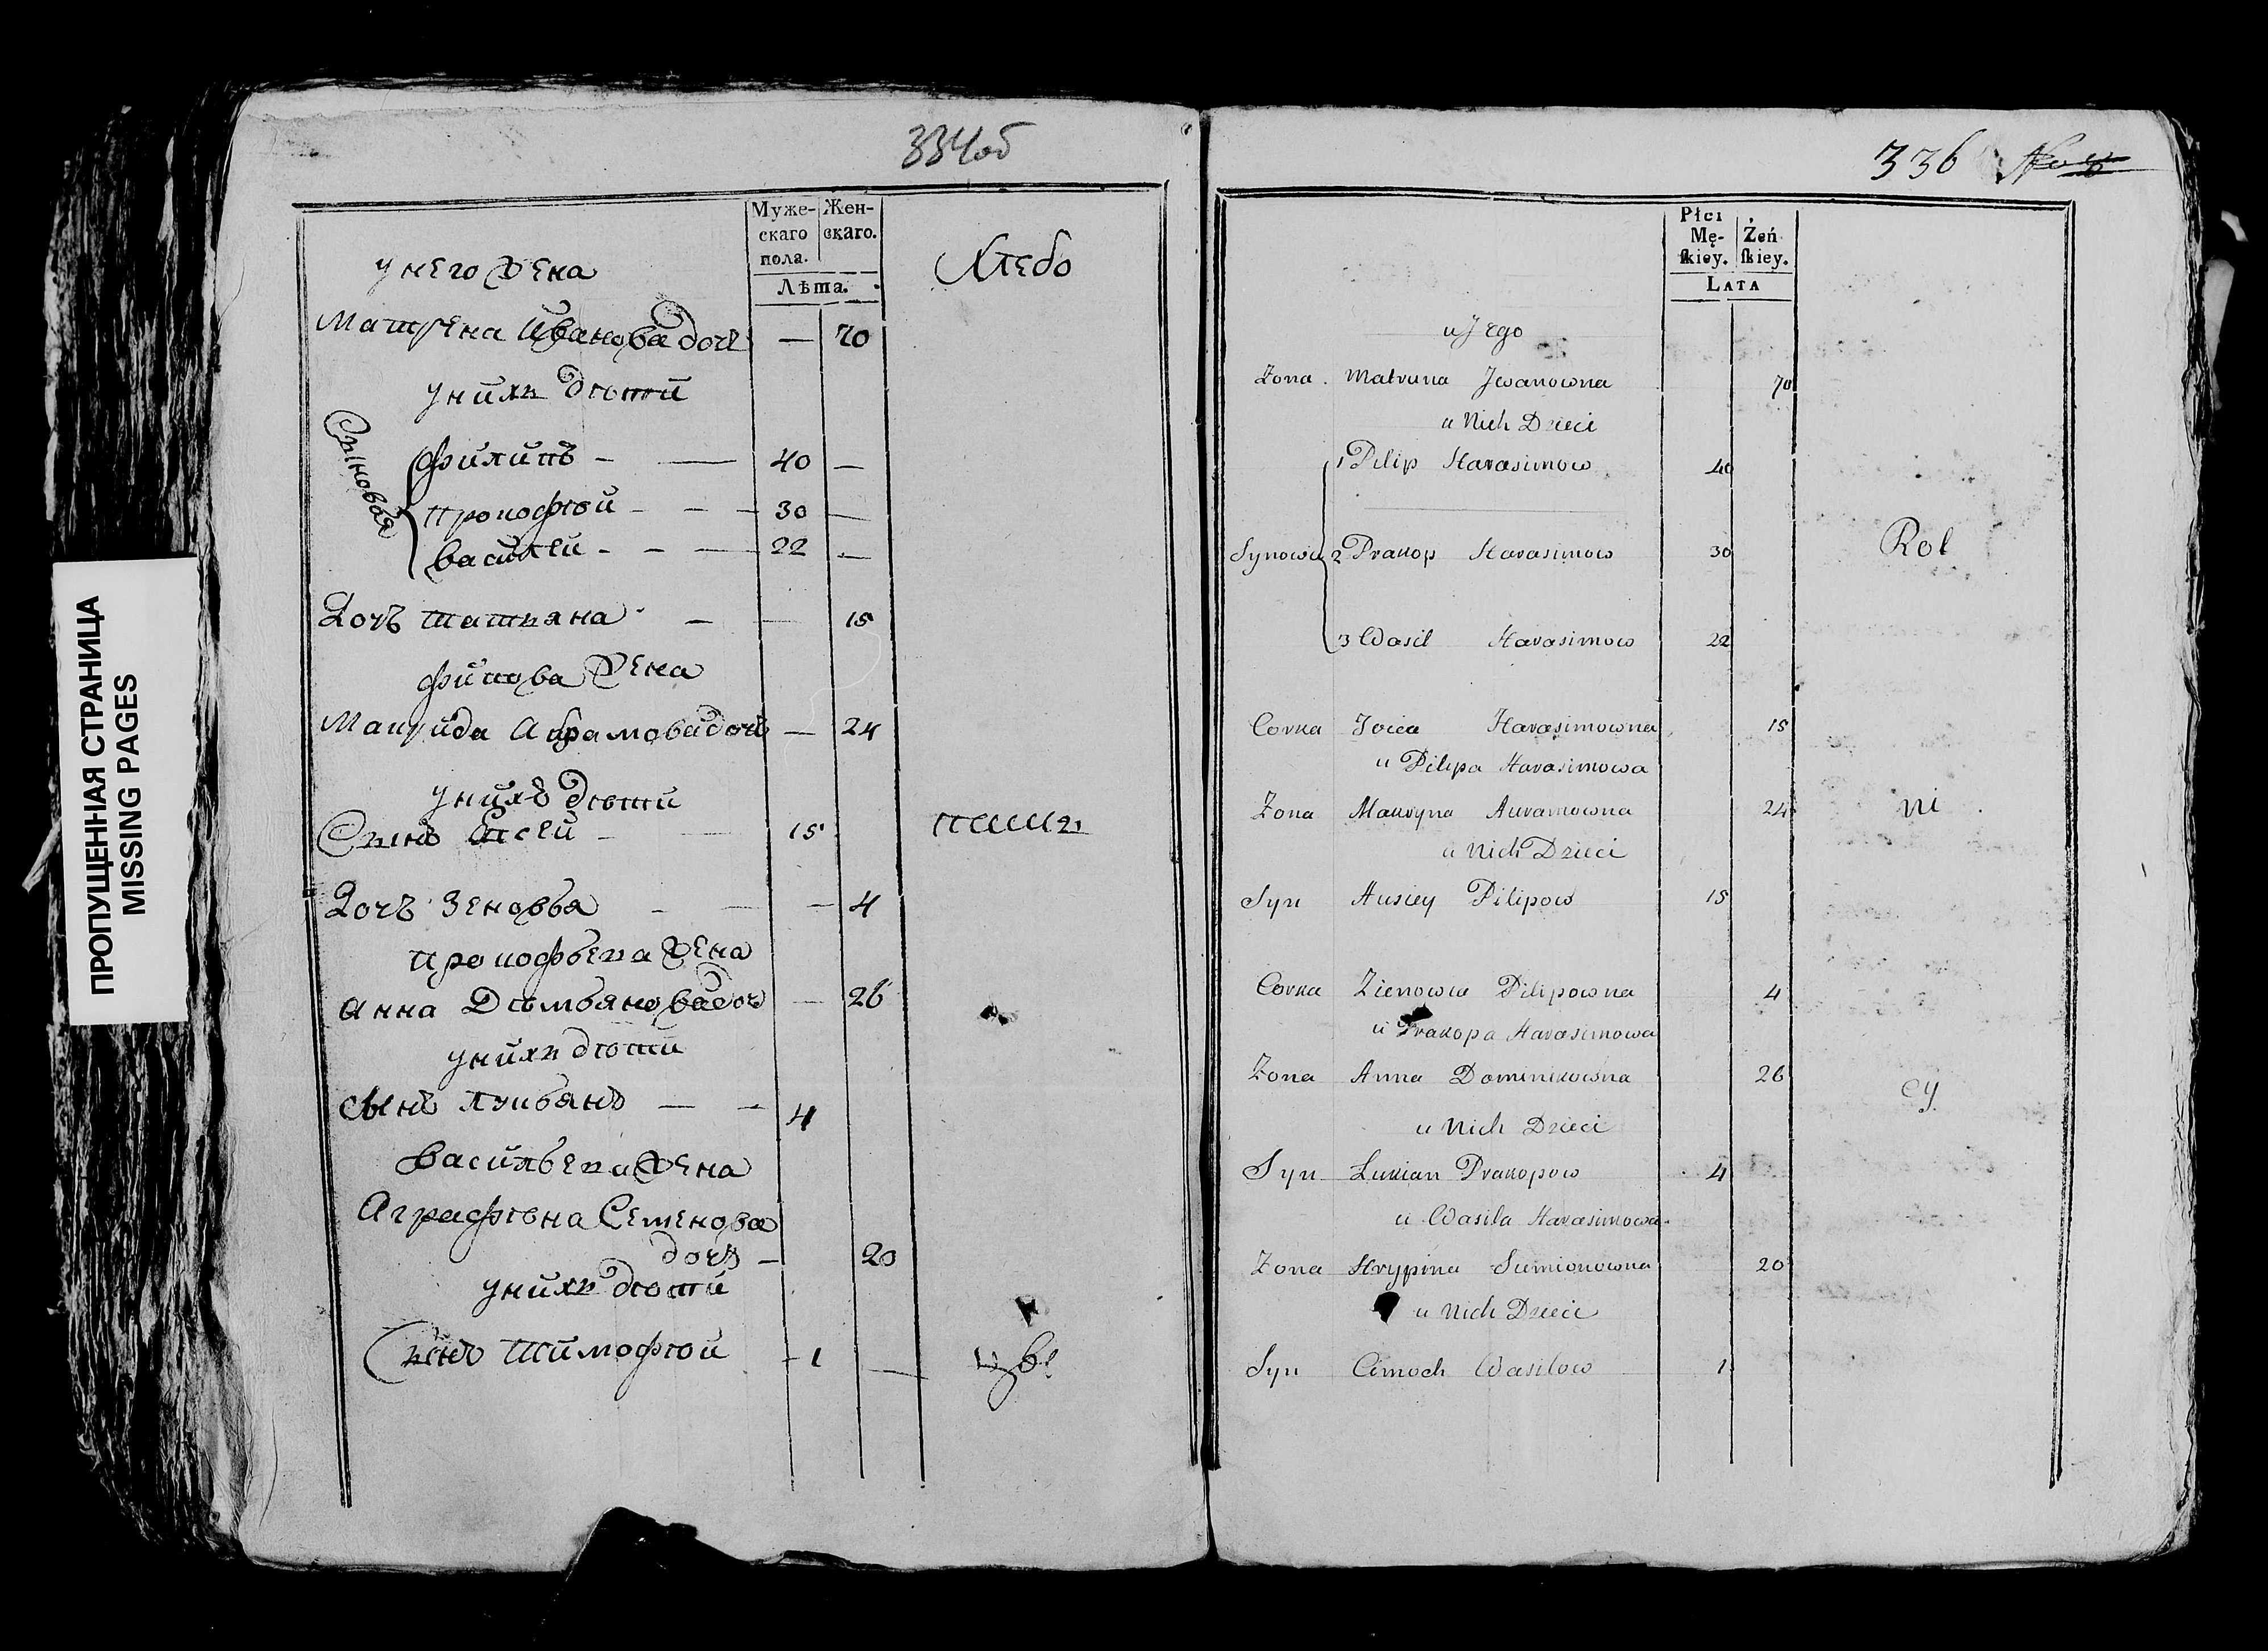 ПРОПУЩЕННАЯ СТРАНИЦА
MISSING PAGES
334об
Муже-
скаго
пола.
Жен-
скаго.
Лѣта.
унего жена
Хлебо
Матрена Иванова дочь — 70
унихъ дѣти
Сыновья
Филипъ - — 40 —
Прокофѣй - - — 30 —
Василей - - — 22 —
Дочь Татьяна - — 15
Филипова жена
Макрида Абрамова дочь — 24
унихъ дѣти
Сынъ Авсей - — 15
пашц
Дочь Зеновья - — — 4
Прокофьева жена
Анна Дѣмьянова доч — 26
унихъ дѣти
Сынъ Лукьянъ — - 4
Васильева жена
Аграфѣна Семенова
дочь - 20
унихъ дѣти
Сынъ Тимофѣй - 1 —
336
Płci
Mę-
ſkiey.
Żeń
ſkiey.
Lata
u Jego
Zona Matruna Jwanowna 70
u Nich Dzieci
1 Pilip Harasimow 40
Synowie 2 Prakop Harasimow 30
Rol
3 Wasil Harasimow 22
Corka Harasimowna 15
u Pilipa Harasimowa
Zona Makryna Auramowna 24
ni
u Nich Dzieci
Syn Ausiey Pilipow 15
Corka Zienowia Pilipowna 4
u Prakopa Harasimowa
Zona Anna Dominikowna 26
cy
u Nich Dzieci
Syn Lukian Prakopow 4
u Wasila Harasimowa
Zona Hrypina Siemionowna 20
u Nich Dzieci
Syn Cimoch Wasilow 1